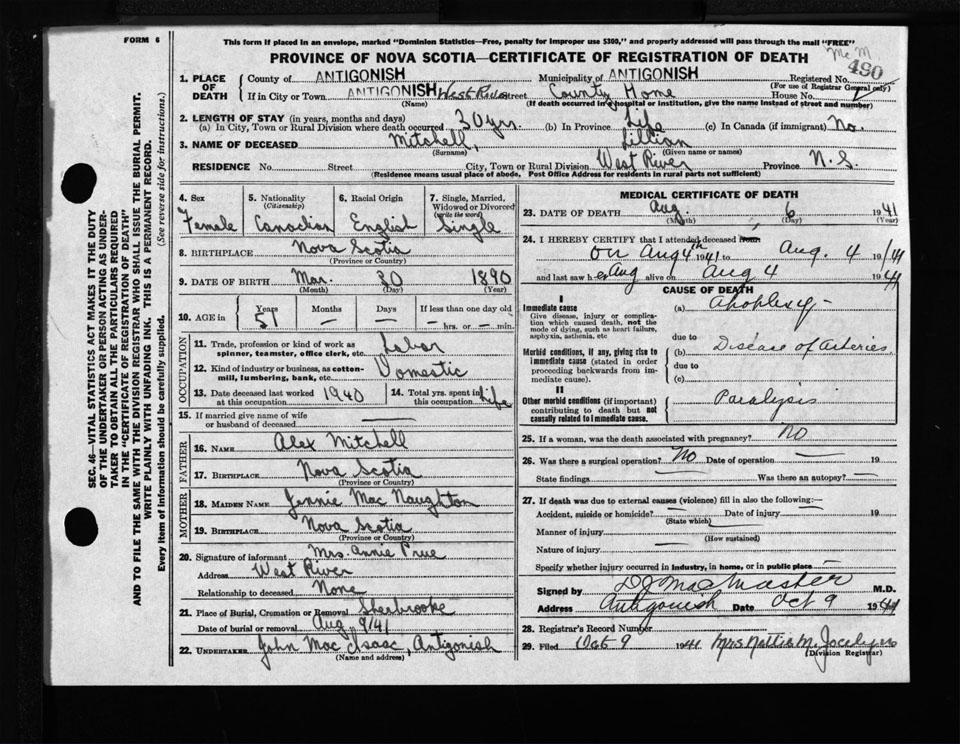 FORM 6
This form if placed in an envelope, marked "Dominion Statistics—Free, penalty for improper use $300," and properly addressed will pass through the mail "FREE"
PROVINCE OF NOVA SCOTIA—CERTIFICATE OF REGISTRATION OF DEATH
490
1. PLACE OF DEATH
County of ANTIGONISH Municipality of ANTIGONISH Registered No.
(For use of Registrar General only)
If in City or Town ANTIGONISH West River street County Home House No.
(Name) (If death occurred in a hospital or institution, give the name instead of street and number)
2. LENGTH OF STAY (in years, months and days)
(a) In City, Town or Rural Division where death occurred 30 yrs. (b) In Province Life (c) In Canada (if immigrant) No.
3. NAME OF DECEASED Mitchell, Lillian
(Surname) (Given name or names)
RESIDENCE No. Street City, Town or Rural Division West River Province N.S.
(Residence means usual place of abode. Post Office Address for residents in rural parts not sufficient)
4. Sex Female
5. Nationality (Citizenship) Canadian
6. Racial Origin English
7. Single, Married, Widowed or Divorced (write the word) Single
8. BIRTHPLACE Nova Scotia
(Province or Country)
9. DATE OF BIRTH Mar. 30 1890
(Month) (Day) (Year)
10. AGE in Years 51 Months — Days — If less than one day old — hrs. or — min.
OCCUPATION
11. Trade, profession or kind of work as spinner, teamster, office clerk, etc. Labor
12. Kind of industry or business, as cotton-mill, lumbering, bank, etc. Domestic
13. Date deceased last worked at this occupation 1940
14. Total yrs. spent in this occupation Life
15. If married give name of wife or husband of deceased —
FATHER
16. NAME Alex Mitchell
17. BIRTHPLACE Nova Scotia
(Province or Country)
MOTHER
18. MAIDEN NAME Jennie Mac Naughton
19. BIRTHPLACE Nova Scotia
(Province or Country)
20. Signature of informant Mrs. Annie Prue
Address West River
Relationship to deceased None
21. Place of Burial, Cremation or Removal Sherbrooke
Date of burial or removal Aug 9/41
22. UNDERTAKER John Mac Isaac, Antigonish
(Name and address)
MEDICAL CERTIFICATE OF DEATH
23. DATE OF DEATH Aug. 6 1941
(Month) (Day) (Year)
24. I HEREBY CERTIFY that I attended deceased from
on Aug 4th 1941 to Aug. 4 1941
and last saw her alive on Aug 4 1941
CAUSE OF DEATH
I
Immediate cause
Give disease, injury or complication which caused death, not the mode of dying, such as heart failure, asphyxia, asthenia, etc
(a) Apoplexy
due to
Morbid conditions, if any, giving rise to immediate cause (stated in order proceeding backwards from immediate cause).
(b) Disease of Arteries
due to
(c)
II
Other morbid conditions (if important) contributing to death but not causally related to immediate cause.
Paralysis
25. If a woman, was the death associated with pregnancy? No
26. Was there a surgical operation? No Date of operation — 19
State findings — Was there an autopsy? —
27. If death was due to external causes (violence) fill in also the following:—
Accident, suicide or homicide? — Date of injury — 19
(State which)
Manner of injury —
(How sustained)
Nature of injury —
Specify whether injury occurred in industry, in home, or in public place —
Signed by D J MacMaster M.D.
Address Antigonish Date Oct 9 1941
28. Registrar's Record Number
29. Filed Oct 9 1941 Mrs Nattie M. Jocelyn
(Division Registrar)
SEC. 46—VITAL STATISTICS ACT MAKES IT THE DUTY
OF THE UNDERTAKER OR PERSON ACTING AS UNDER-
TAKER TO OBTAIN ALL THE PARTICULARS REQUIRED
IN THE "CERTIFICATE OF REGISTRATION OF DEATH"
AND TO FILE THE SAME WITH THE DIVISION REGISTRAR WHO SHALL ISSUE THE BURIAL PERMIT.
WRITE PLAINLY WITH UNFADING INK. THIS IS A PERMANENT RECORD.
Every item of information should be carefully supplied. (See reverse side for instructions.)